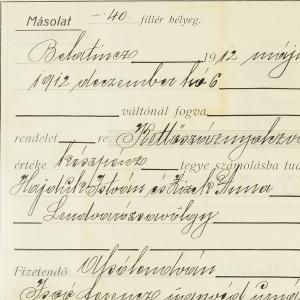 Másolat -40 fillér bélyeg.
Belatincz 1912 máju
1912 deczember hó 6
váltónál fogva
rendelet re Kettőszáznyolczva
értéke készpénz tegye számolásba tud
Hajdúk István és Anna
Lendvarózsavölgy
Fizetendő Alsólendván
Ferencz ügyvéd úrná